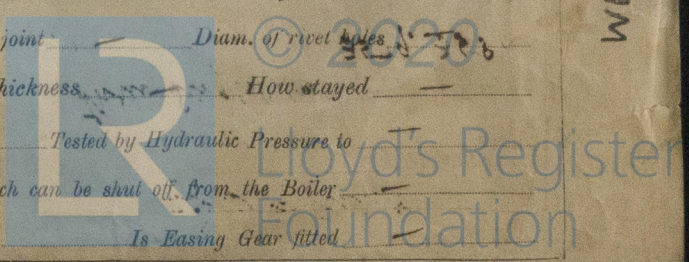 joint — Diam. of rivet holes
hickness — How stayed —
Tested by Hydraulic Pressure to —
ch can be shut off from the Boiler —
Is Easing Gear fitted —
LR
© 2020
Lloyd's Register
Foundation